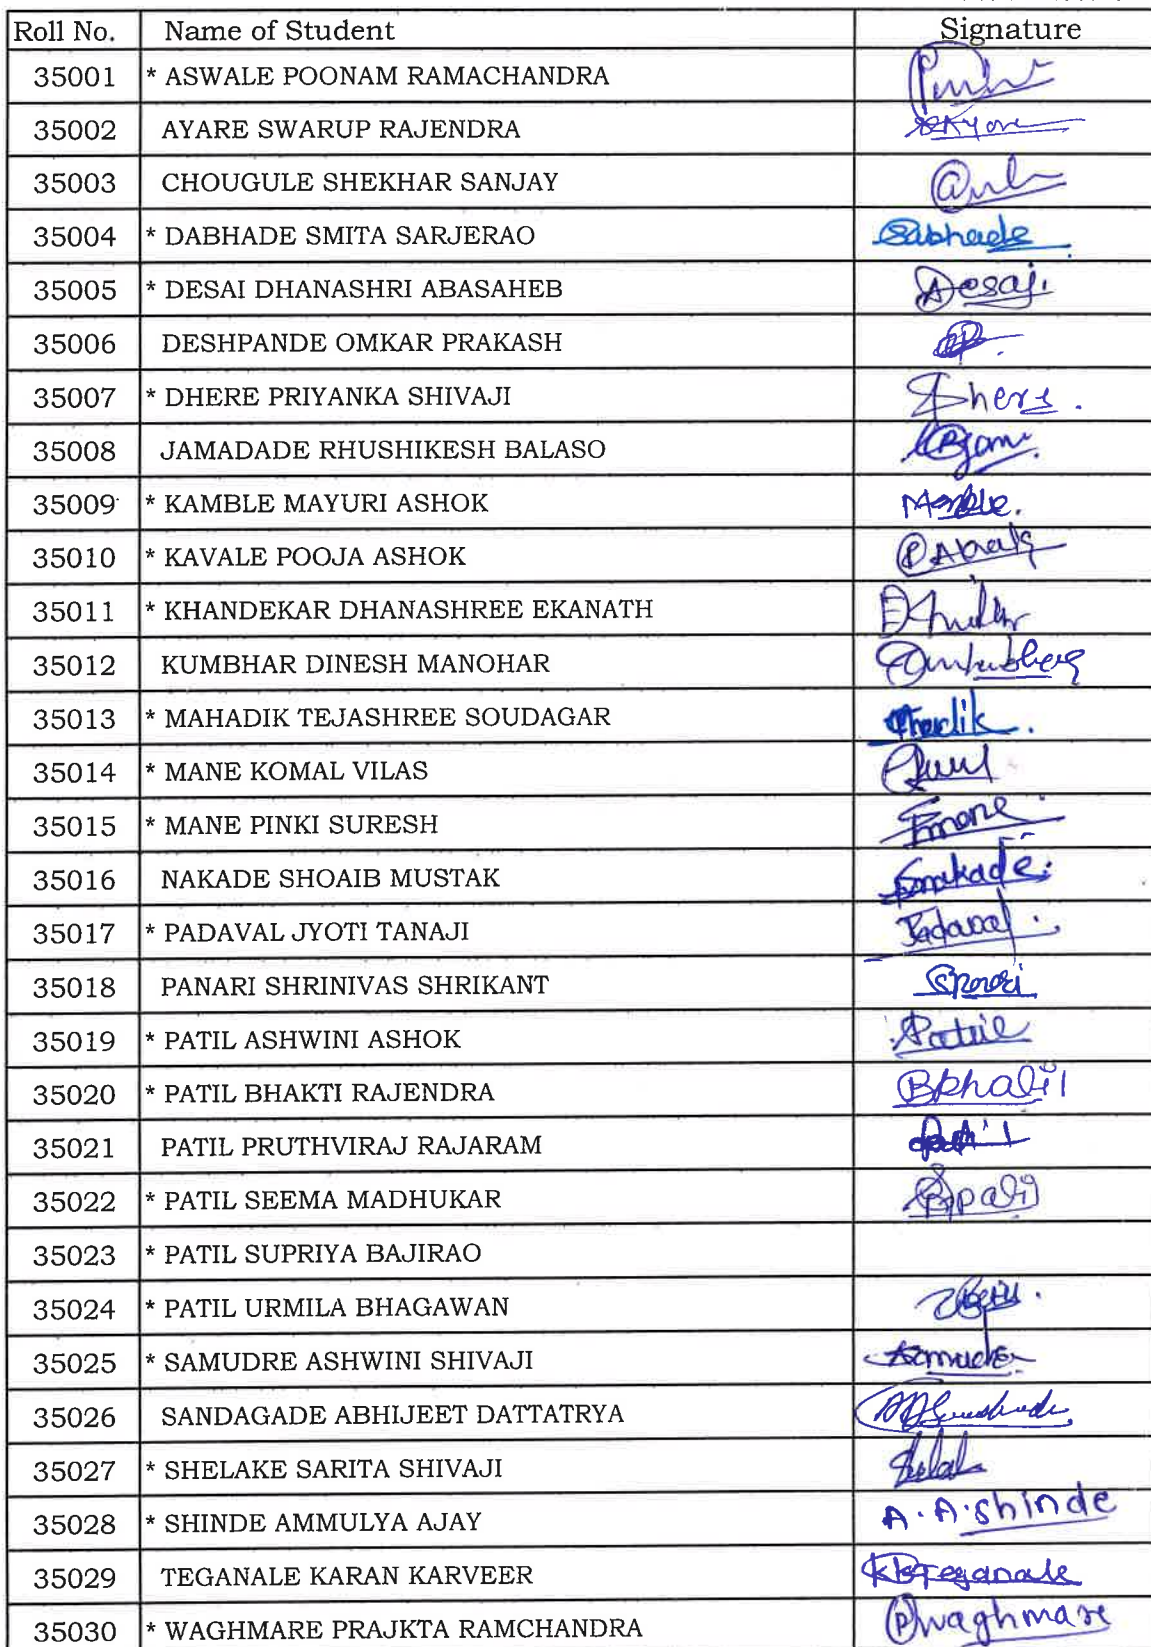 Roll No. Name of Student Signature
35001 * ASWALE POONAM RAMACHANDRA
35002 AYARE SWARUP RAJENDRA
35003 CHOUGULE SHEKHAR SANJAY
35004 * DABHADE SMITA SARJERAO
35005 * DESAI DHANASHRI ABASAHEB Desai
35006 DESHPANDE OMKAR PRAKASH
35007 * DHERE PRIYANKA SHIVAJI Dhere.
35008 JAMADADE RHUSHIKESH BALASO
35009 * KAMBLE MAYURI ASHOK
35010 * KAVALE POOJA ASHOK
35011 * KHANDEKAR DHANASHREE EKANATH
35012 KUMBHAR DINESH MANOHAR
35013 * MAHADIK TEJASHREE SOUDAGAR
35014 * MANE KOMAL VILAS
35015 * MANE PINKI SURESH
35016 NAKADE SHOAIB MUSTAK
35017 * PADAVAL JYOTI TANAJI
35018 PANARI SHRINIVAS SHRIKANT
35019 * PATIL ASHWINI ASHOK
35020 * PATIL BHAKTI RAJENDRA
35021 PATIL PRUTHVIRAJ RAJARAM
35022 * PATIL SEEMA MADHUKAR
35023 * PATIL SUPRIYA BAJIRAO
35024 * PATIL URMILA BHAGAWAN
35025 * SAMUDRE ASHWINI SHIVAJI
35026 SANDAGADE ABHIJEET DATTATRYA
35027 * SHELAKE SARITA SHIVAJI
35028 * SHINDE AMMULYA AJAY A.A.Shinde
35029 TEGANALE KARAN KARVEER
35030 * WAGHMARE PRAJKTA RAMCHANDRA Pwaghmare